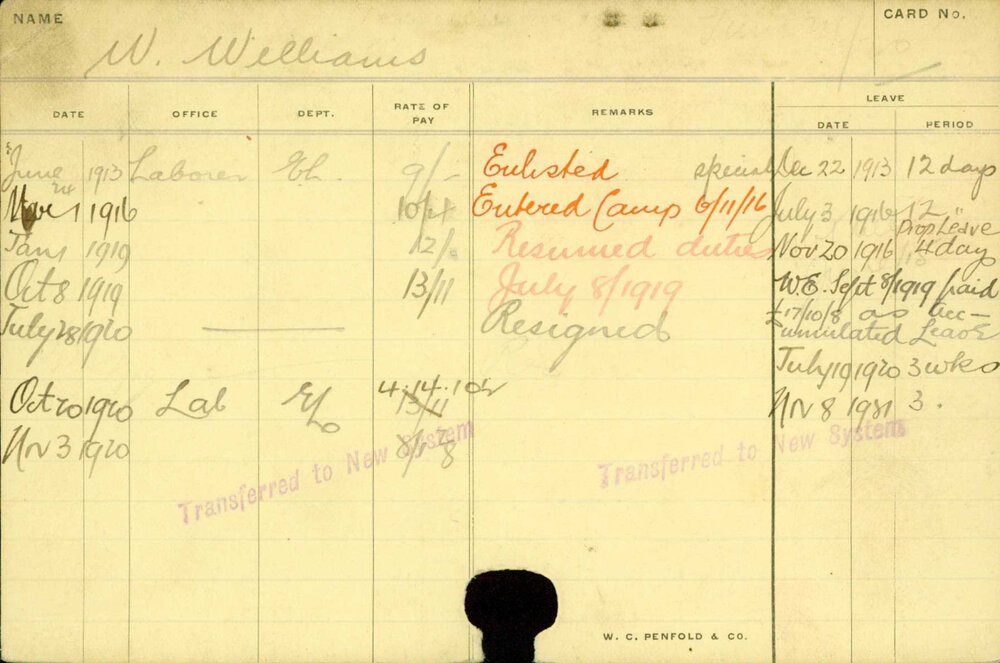 NAME
CARD No.
W. Williams
DATE OFFICE DEPT. RATE OF PAY REMARKS LEAVE
DATE PERIOD
June 1913 Laborer El. 9/- Enlisted special Dec 22 1913 12 days
Mar 1 1916 10/4 Entered Camp 6/11/16 July 3 1916 12 "
Prop Leave
Jan 1 1919 12/. Resumed duties Nov 20 1916 4 day
Oct 8 1919 13/11 July 8/1919 W.E. Sept 8/1919 paid
£17/10/8 as Acc-
July 28 1920 Resigned umulated Leave
July 19 1920 3 wks
4.14.10
Oct 20 1920 Lab EL 13/11 Nov 8 1921 3.
Nov 3 1920
Transferred to New System
Transferred to New System
W. C. PENFOLD & CO.